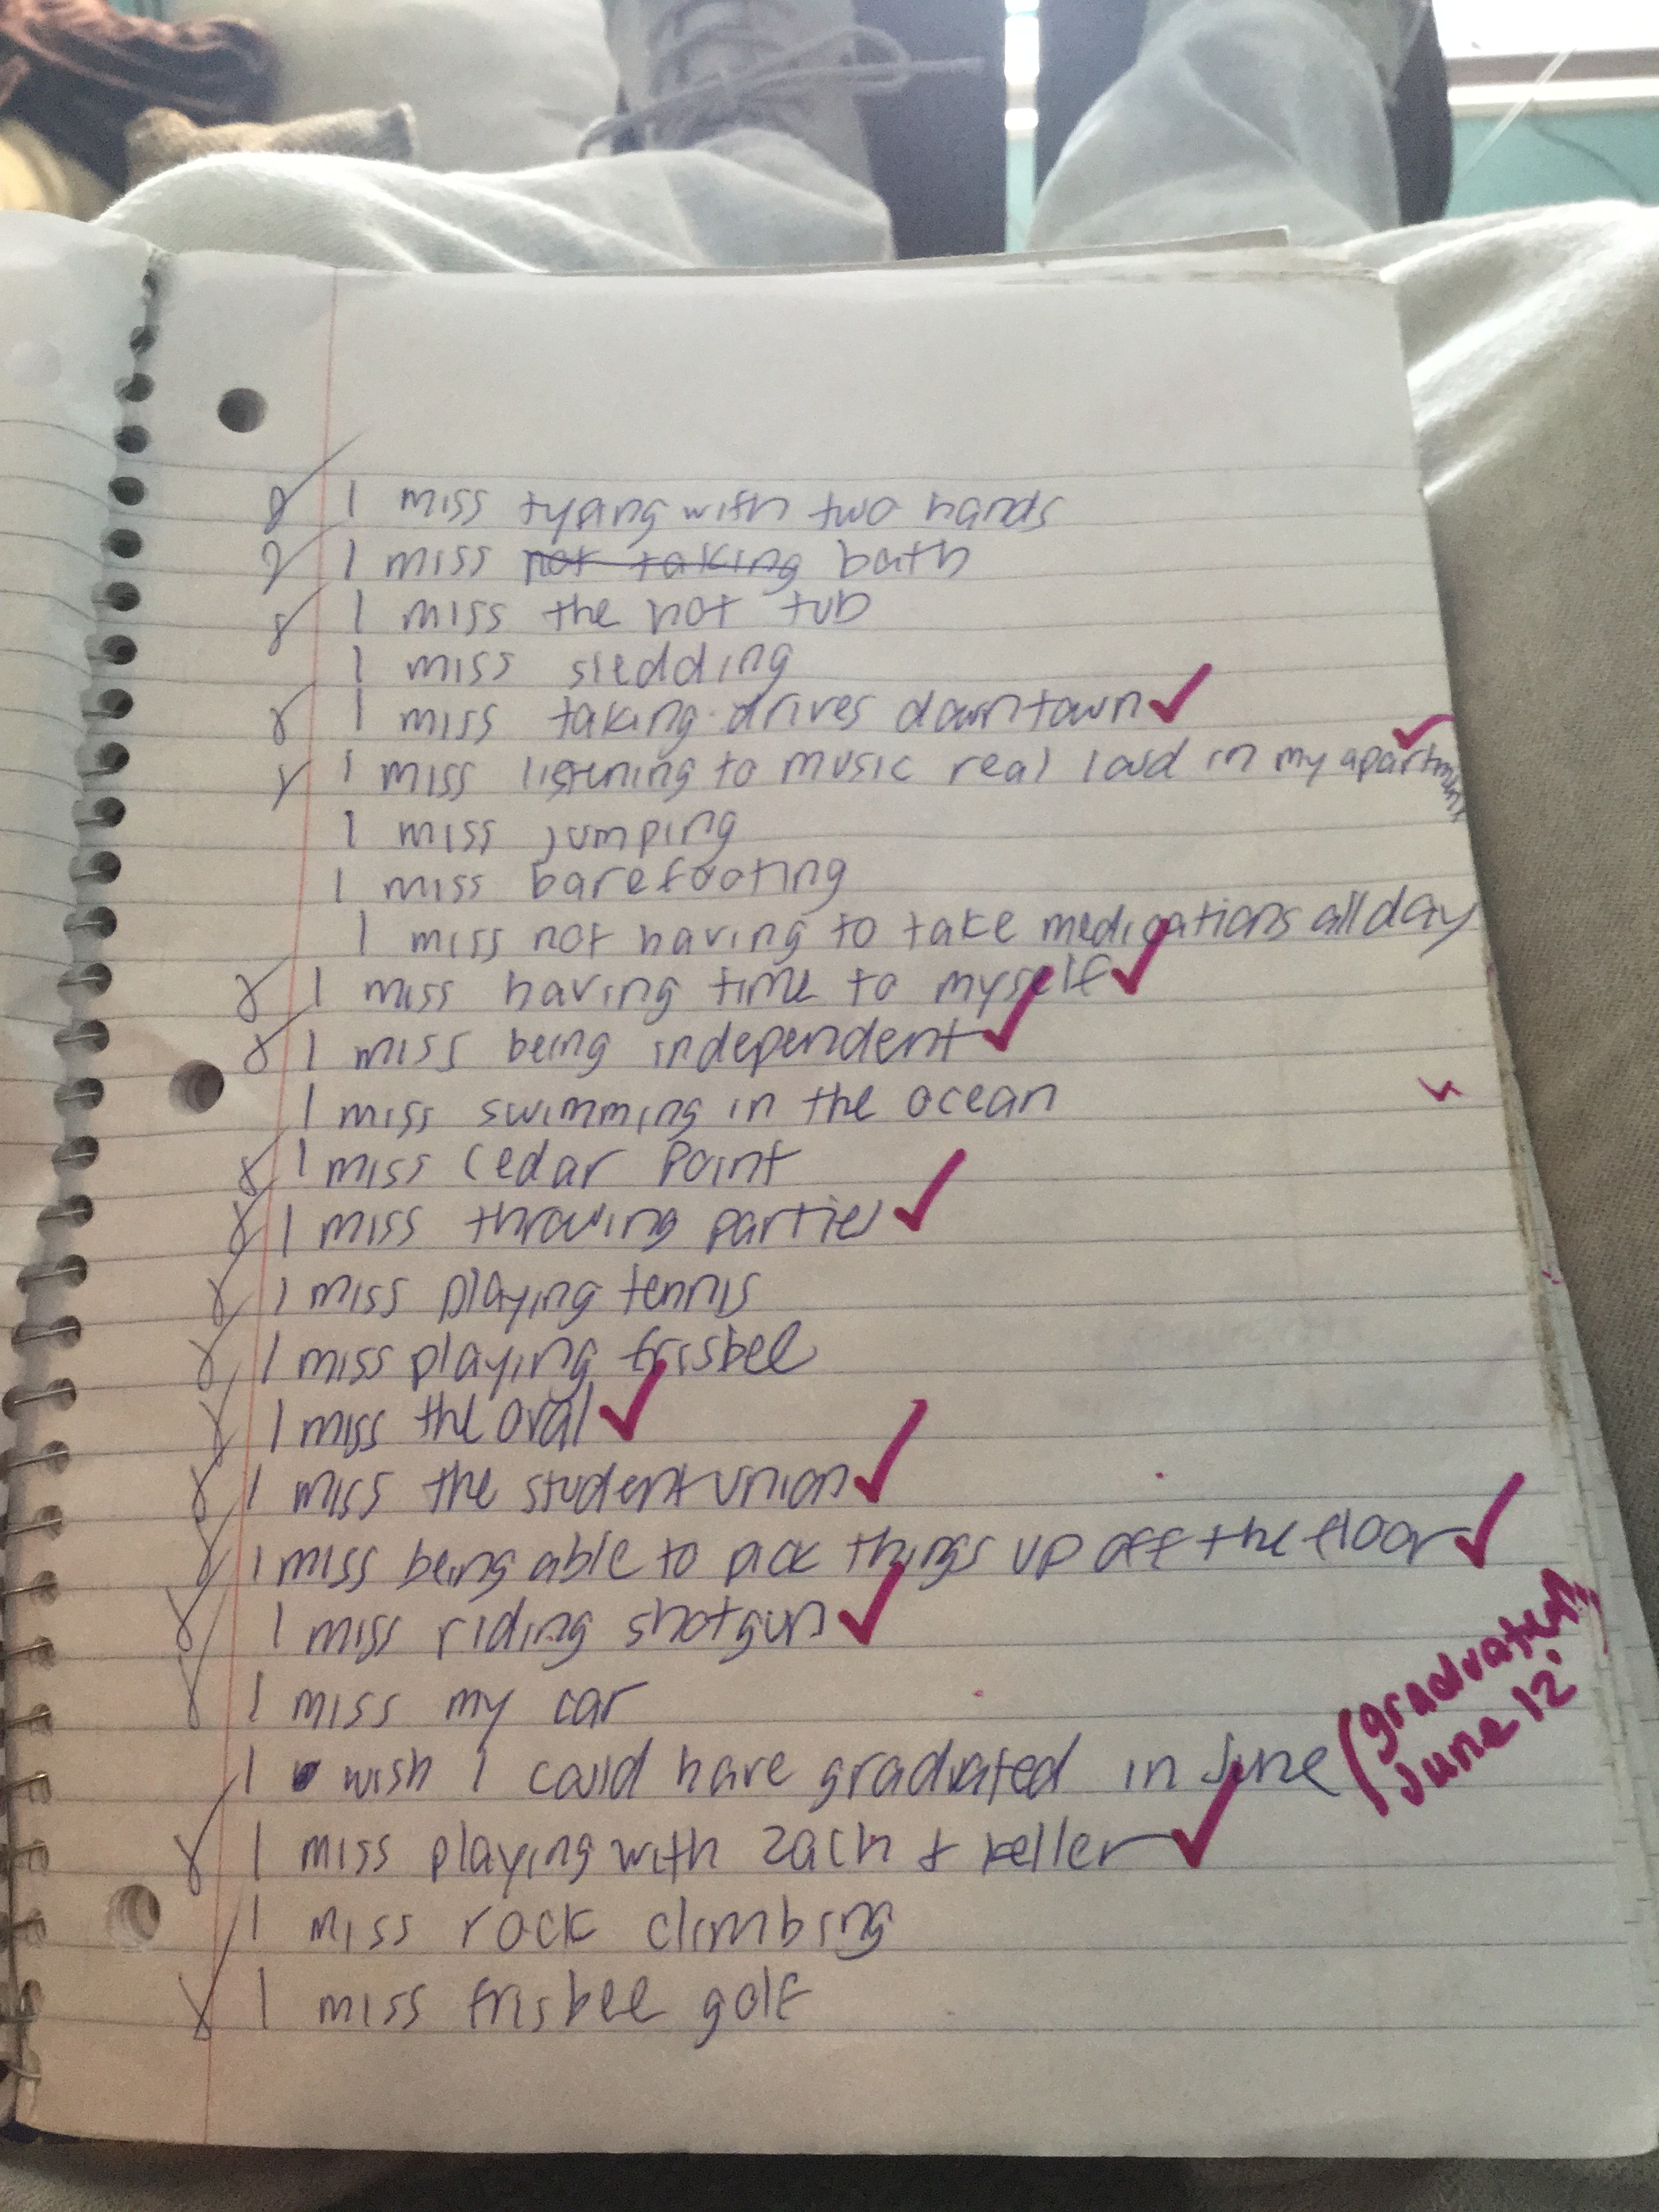 I miss typing with two hands
I miss not taking bath
I miss the hot tub
I miss sledding
I miss taking drives downtown ✓
I miss listening to music real loud in my apartment ✓
I miss jumping
I miss barefooting
I miss not having to take medications all day
I miss having time to myself ✓
I miss being independent ✓
I miss swimming in the ocean
I miss Cedar Point
I miss throwing parties ✓
I miss playing tennis
I miss playing frisbee
I miss the oval ✓
I miss the student union ✓
I miss being able to pick things up off the floor ✓
I miss riding shotgun ✓
I miss my car
I wish I could have graduated in June (graduated
June 12'
I miss playing with Zach + Keller ✓
I miss rock climbing
I miss frisbee golf